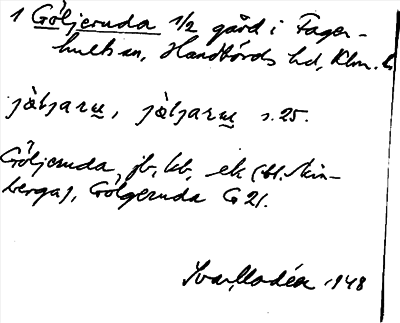 1 Göljeruda 1/2 gård i Fager-
hult sn, Handbörds hd, Klm. l.
s. 25.
Göljeruda, jb, kb, ek (bl.
berga), Gölgeruda G 21.
Ivar Modéer 1948